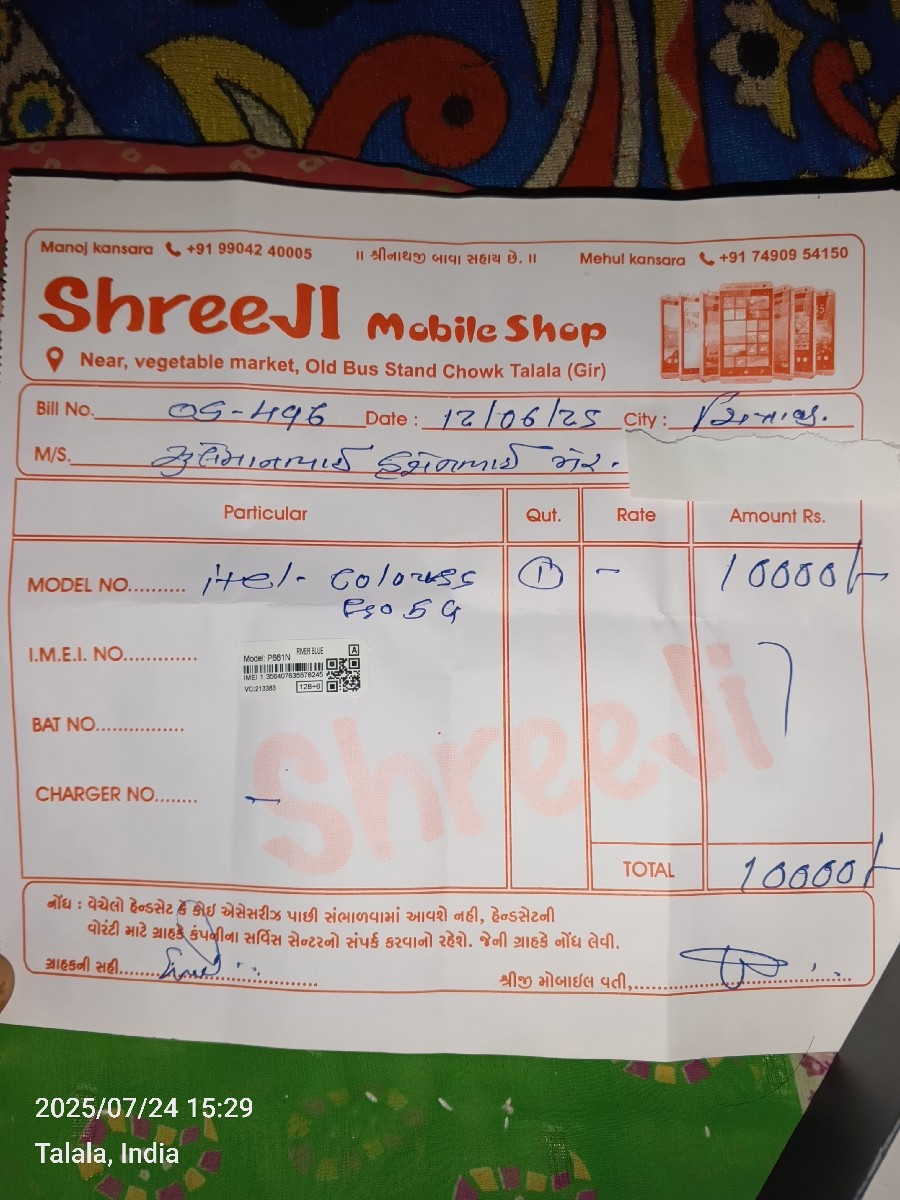 Manoj kansara +91 99042 40005 ॥ શ્રીનાથજી બાવા સહાય છે. ॥ Mehul kansara +91 74909 54150
ShreeJI Mobile Shop
Near, vegetable market, Old Bus Stand Chowk Talala (Gir)
Bill No. 05-496 Date : 12/06/25 City :
M/S. સુલેમાનભાઈ હુસેનભાઈ
Particular Qut. Rate Amount Rs.
MODEL NO.......... itel- Coloress 1 - 10000/-
P50 5G
I.M.E.I. NO.............
Model: P661N RIVER BLUE A
IMEI 1 356407635576245
VC:213383 128+6
BAT NO...............
CHARGER NO........ -
ShreeJi
TOTAL 10000/-
નોંધ : વેચેલો હેન્ડસેટ કે કોઈ એસેસરીઝ પાછી સંભાળવામાં આવશે નહી, હેન્ડસેટની
વોરંટી માટે ગ્રાહકે કંપનીના સર્વિસ સેન્ટરનો સંપર્ક કરવાનો રહેશે. જેની ગ્રાહકે નોંધ લેવી.
ગ્રાહકની સહી........ શ્રીજી મોબાઈલ વતી,........
2025/07/24 15:29
Talala, India